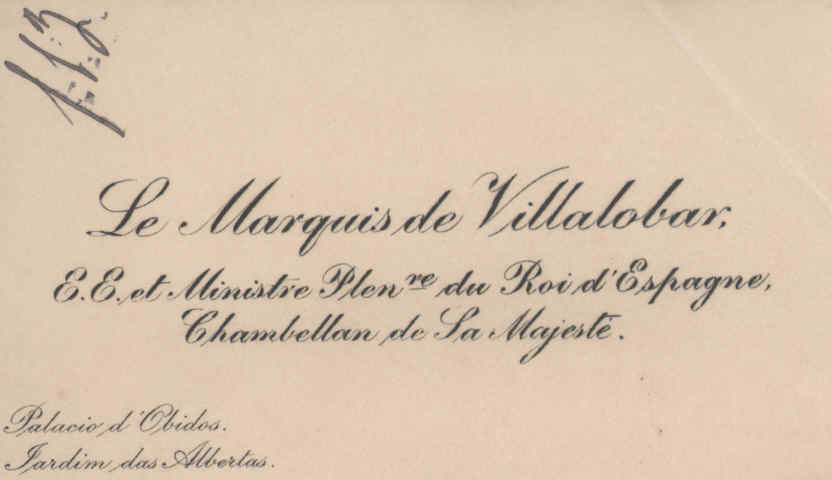 Le Marquis de Villalobar,
E.E. et Ministre Plenre du Roi d'Espagne,
Chambellan de Sa Majesté.
Palacio d'Obidos.
Jardim das Albertas.